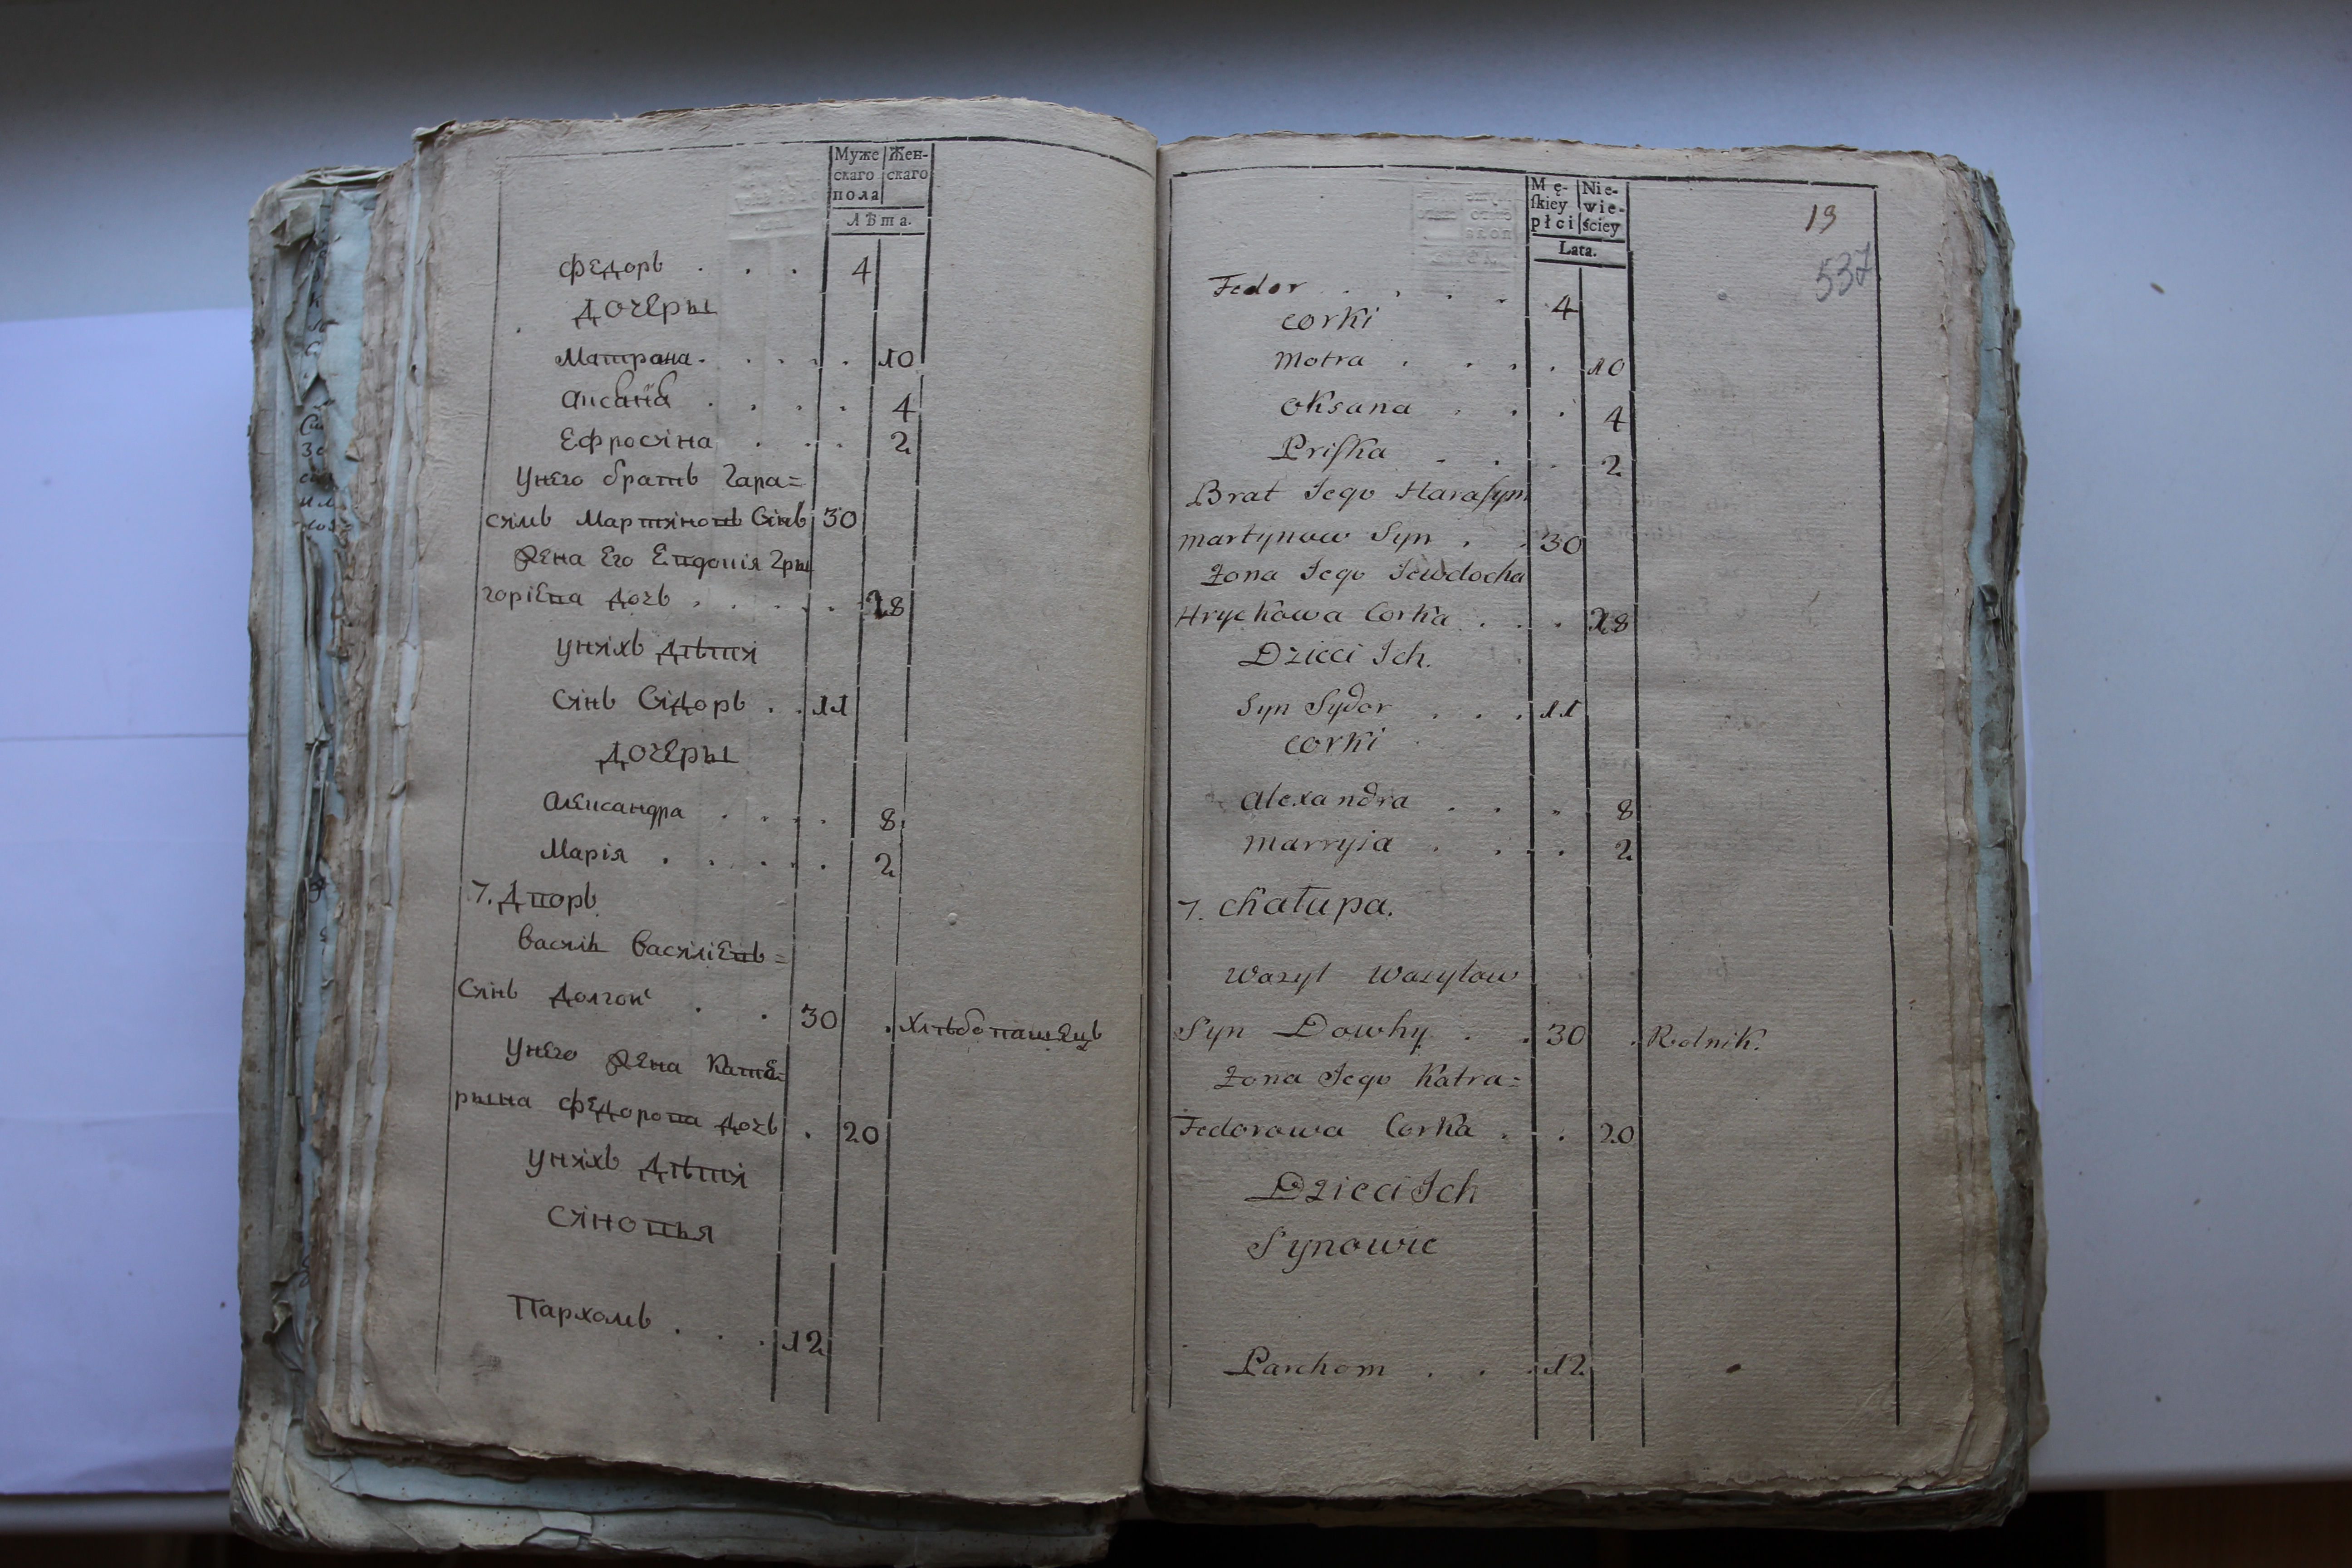 Муже Жен-
скаго скаго
пола
Лѣта.
Федоръ . . . 4
Дочеры
Матрона . . . . 10
Аксана . . . . 4
Ефросяіна . . . 2
Унего братъ Гара=
сямъ Мартяіновъ Сяінъ 30
Жена Его Евдокія Гры
горіева дочъ . . . . . 28
Уняіхъ Дѣтяі
Сяінъ Сідоръ . . 11
Дочеры
Александра . . . . 8
Марія . . . . . 2
7. Дворъ
Васяілъ Васяіліевъ=
Сяінъ Долгой . . 30 . Хлѣбопашецъ
Унего Жена Кате=
рына Федорова дочъ . 20
Уняіхъ Дѣтяі
Сяіновья
Пархомъ . . . 12
Mę- Nie-
ſkiey wie-
płci ściey
Lata.
19
537
Fedor . . . . 4
Corki
Motra . . . . 10
Oksana . . . 4
Priſka . . . 2
Brat Jego Haraſym
Martynow Syn . . 30
Żona Jego Jewdocha
Hryckowa Corka . . . 28
Dzieci Ich.
Syn Sydor . . . 11
Corki
Alexandra . . . 8
Marryia . . . 2
7. Chałupa.
Wasyl Wasylow
Syn Dowhy . . 30 . Rolnik.
Żona Jego Katra=
Fedorowa Corka . . 20
Dzieci Ich
Synowie
Parchom . . . 12